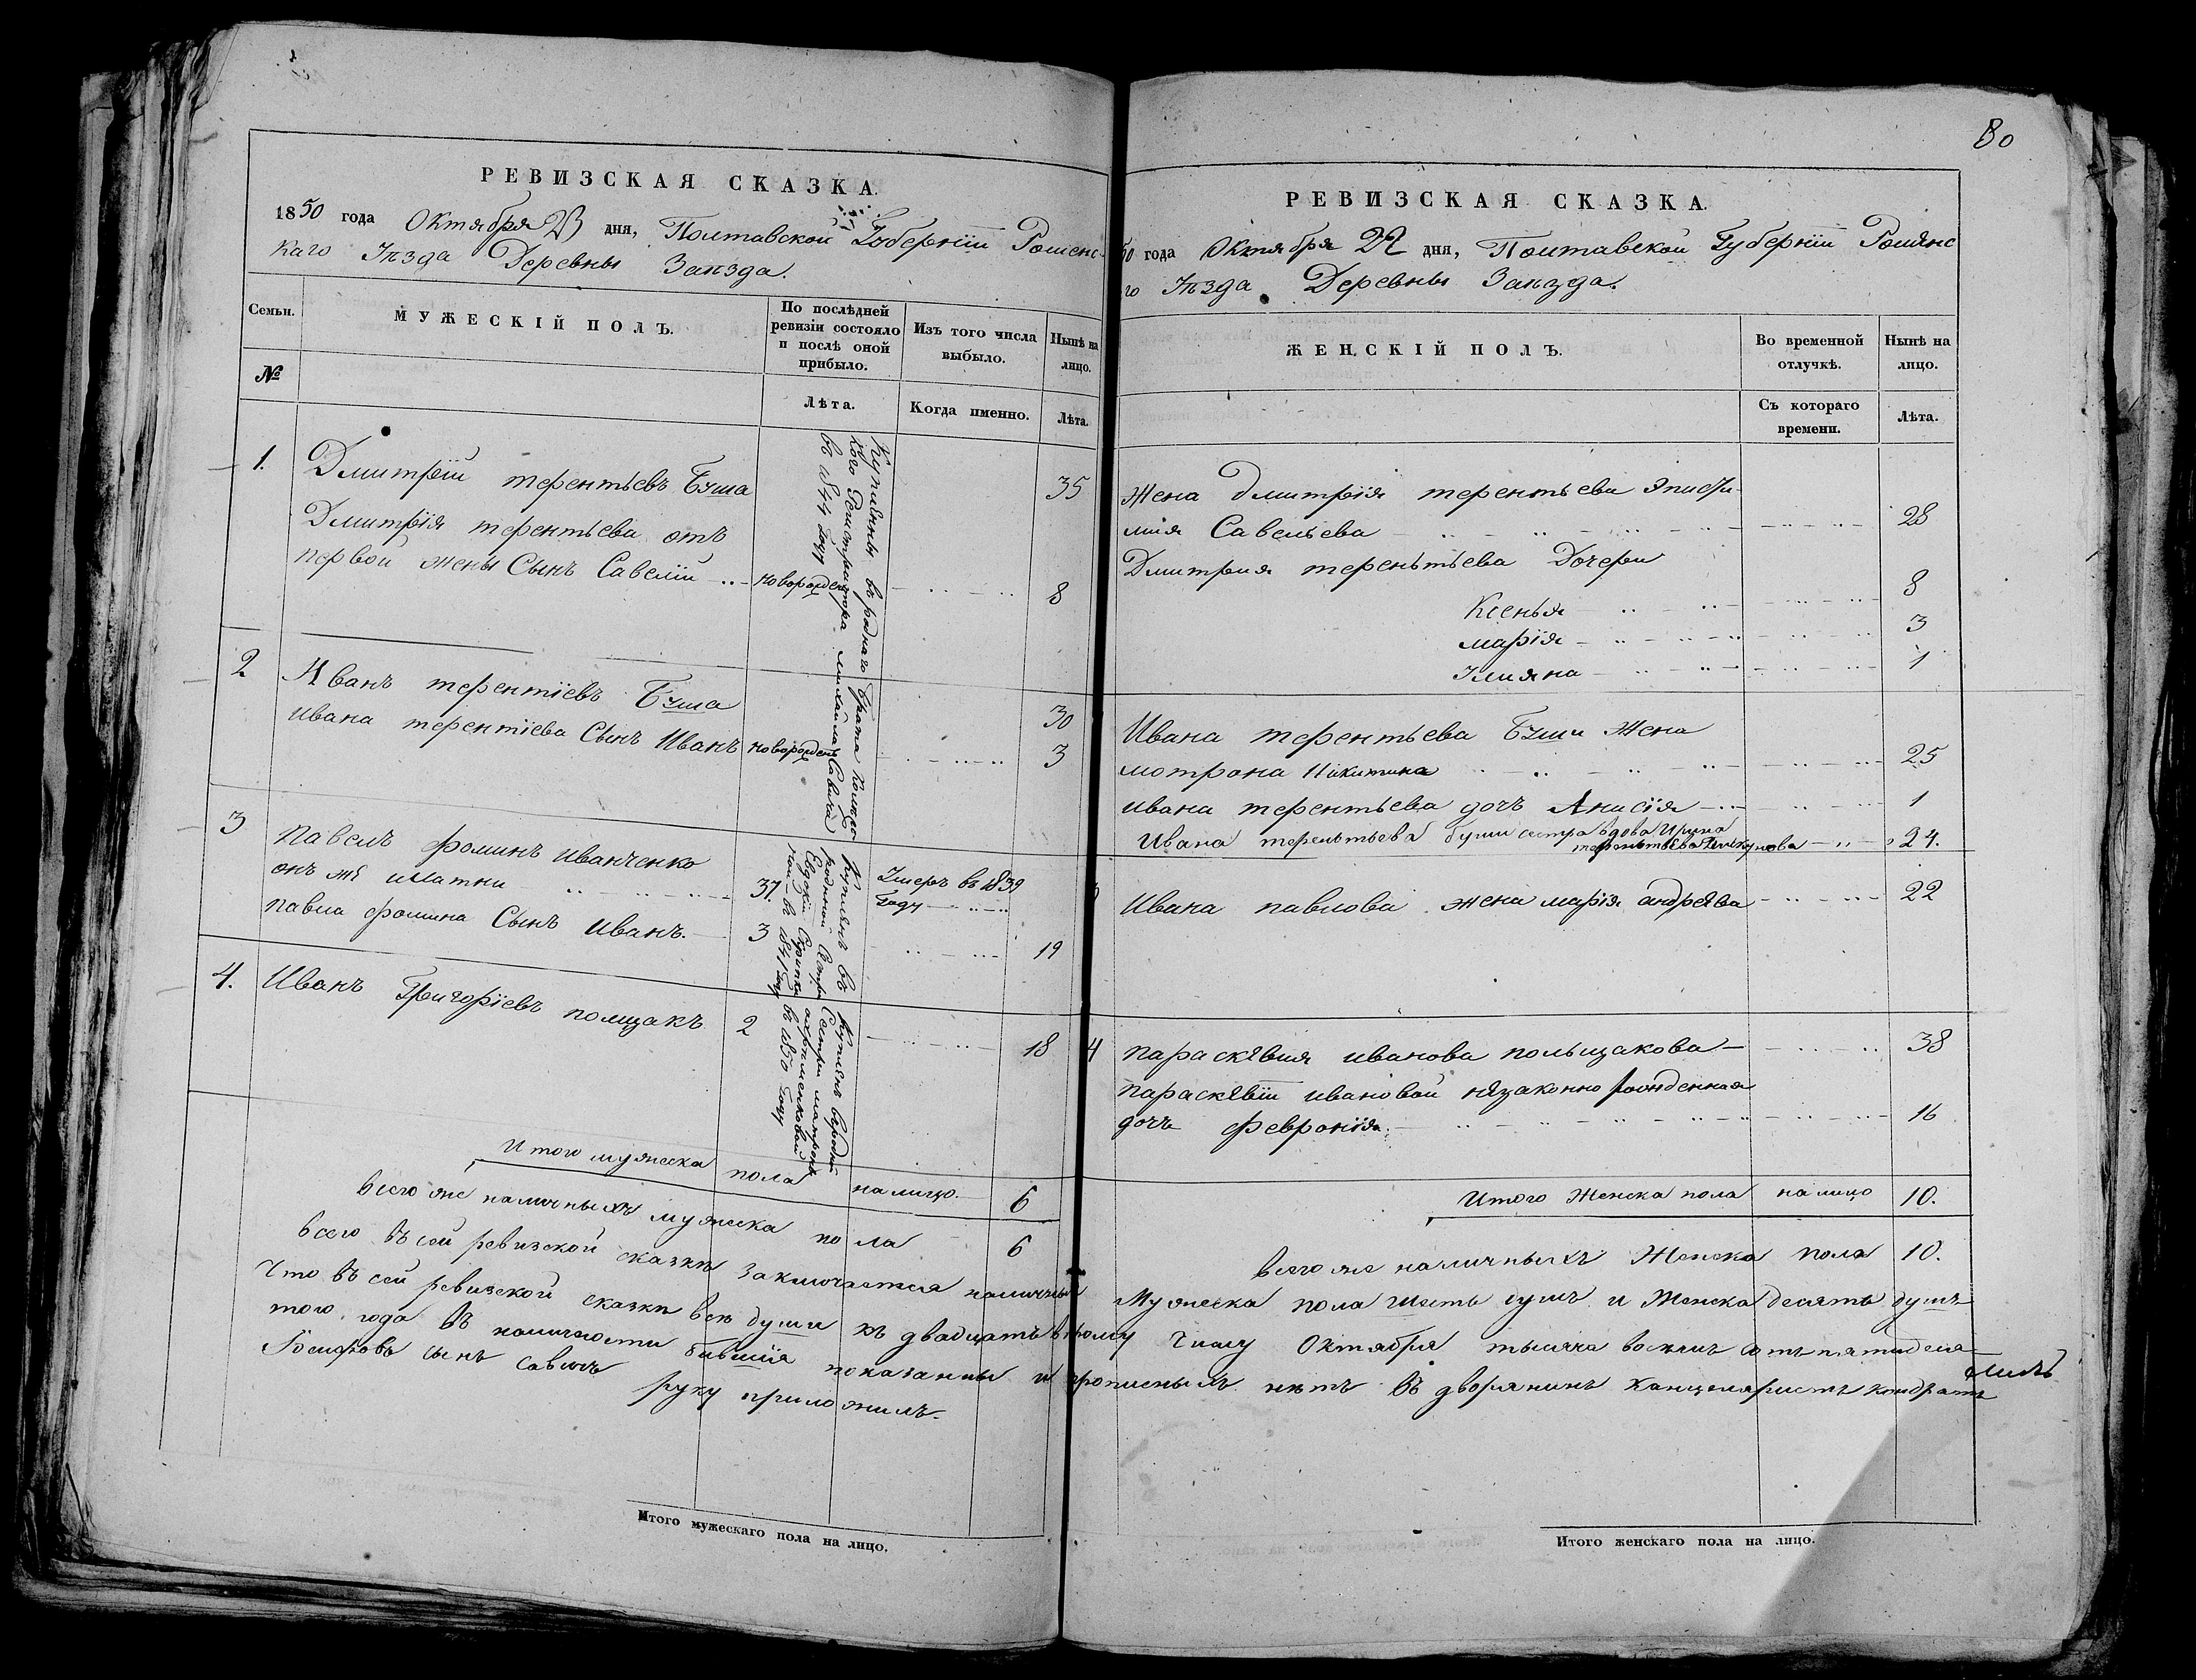 РЕВИЗСКАЯ СКАЗКА.
1850 года Октября 23 дня, Полтавской Губернiи Роменс-
каго Уѣзда Деревны Заѣзда.
Семьи.
МУЖЕСКIЙ ПОЛЪ.
По послѣдней
ревизiи состояло
и послѣ оной
прибыло.
Изъ того числа
выбыло.
Нынѣ на
лицо.
№
Лѣта.
Когда именно.
Лѣта.
1. Дмитрiй терентьевъ Буша 35
Дмитрiя терентьева отъ
первой жены Сынъ Савелiй новорожден 8
Купленны въ роднаго Брата Колеж
кого Регистратора михайла Савича
въ 1844 Году
2 Иванъ терентiевъ Буша 30
ивана терентiева Сынъ Иванъ новорожденъ 3
3 Павелъ фоминъ иванченко
онъ же Платки 37. Умеръ въ 1839
Году
павла фомина Сынъ иванъ. 3 19
Купленъ въ
родной Сестры
въ 1841 году
4. Иванъ Григорiевъ полщакъ 2 18
Купленъ въ родной
Сестры
въ 1850 Году
Итого мужеска пола на лицо. 6
всего же наличныхъ мужеска пола 6
РЕВИЗСКАЯ СКАЗКА.
80
50 года Октября 22 дня, Полтавской Губернiи Роменс
го Уѣзда Деревны Заѣзда.
ЖЕНСКIЙ ПОЛЪ.
Во временной
отлучкѣ.
Нынѣ на
лицо.
Съ котораго
времени.
Лѣта.
Жена дмитрiя терентьева Эписти-
мия Савельева 28
Дмитрия терентьева Дочери
Ксенья 8
марiя 3
Улияна 1
Ивана терентьева Буши жена
мотрона Никитина 25
ивана терентьева дочъ Анисiя 1
Ивана терентьева буши сестра вдова Ирина
терентьева 24.
Ивана павлова жена марiя андреева 22
4 параскевия иванова польщакова 38
параскевiи ивановой незаконно рожденная
дочъ феврониiя 16
Итого Женска пола на лицо 10.
всего же наличныхъ Женска пола 10.
всего въ сей ревизской сказкѣ заключается наличныхъ Мужеска пола шесть душъ и Женска десять душъ
Что въ сей ревизской сказкѣ всѣ души къ двадцать второму числу Октября тысяча восемь сотъ пятидеся-
того года въ наличности бывшiя показанны и прописныхъ нѣтъ въ дворянинъ канцеляристъ кондратъ
Iосифовъ сынъ савичъ руку приложилъ.
Итого мужескаго пола на лицо.
Итого женскаго пола на лицо.